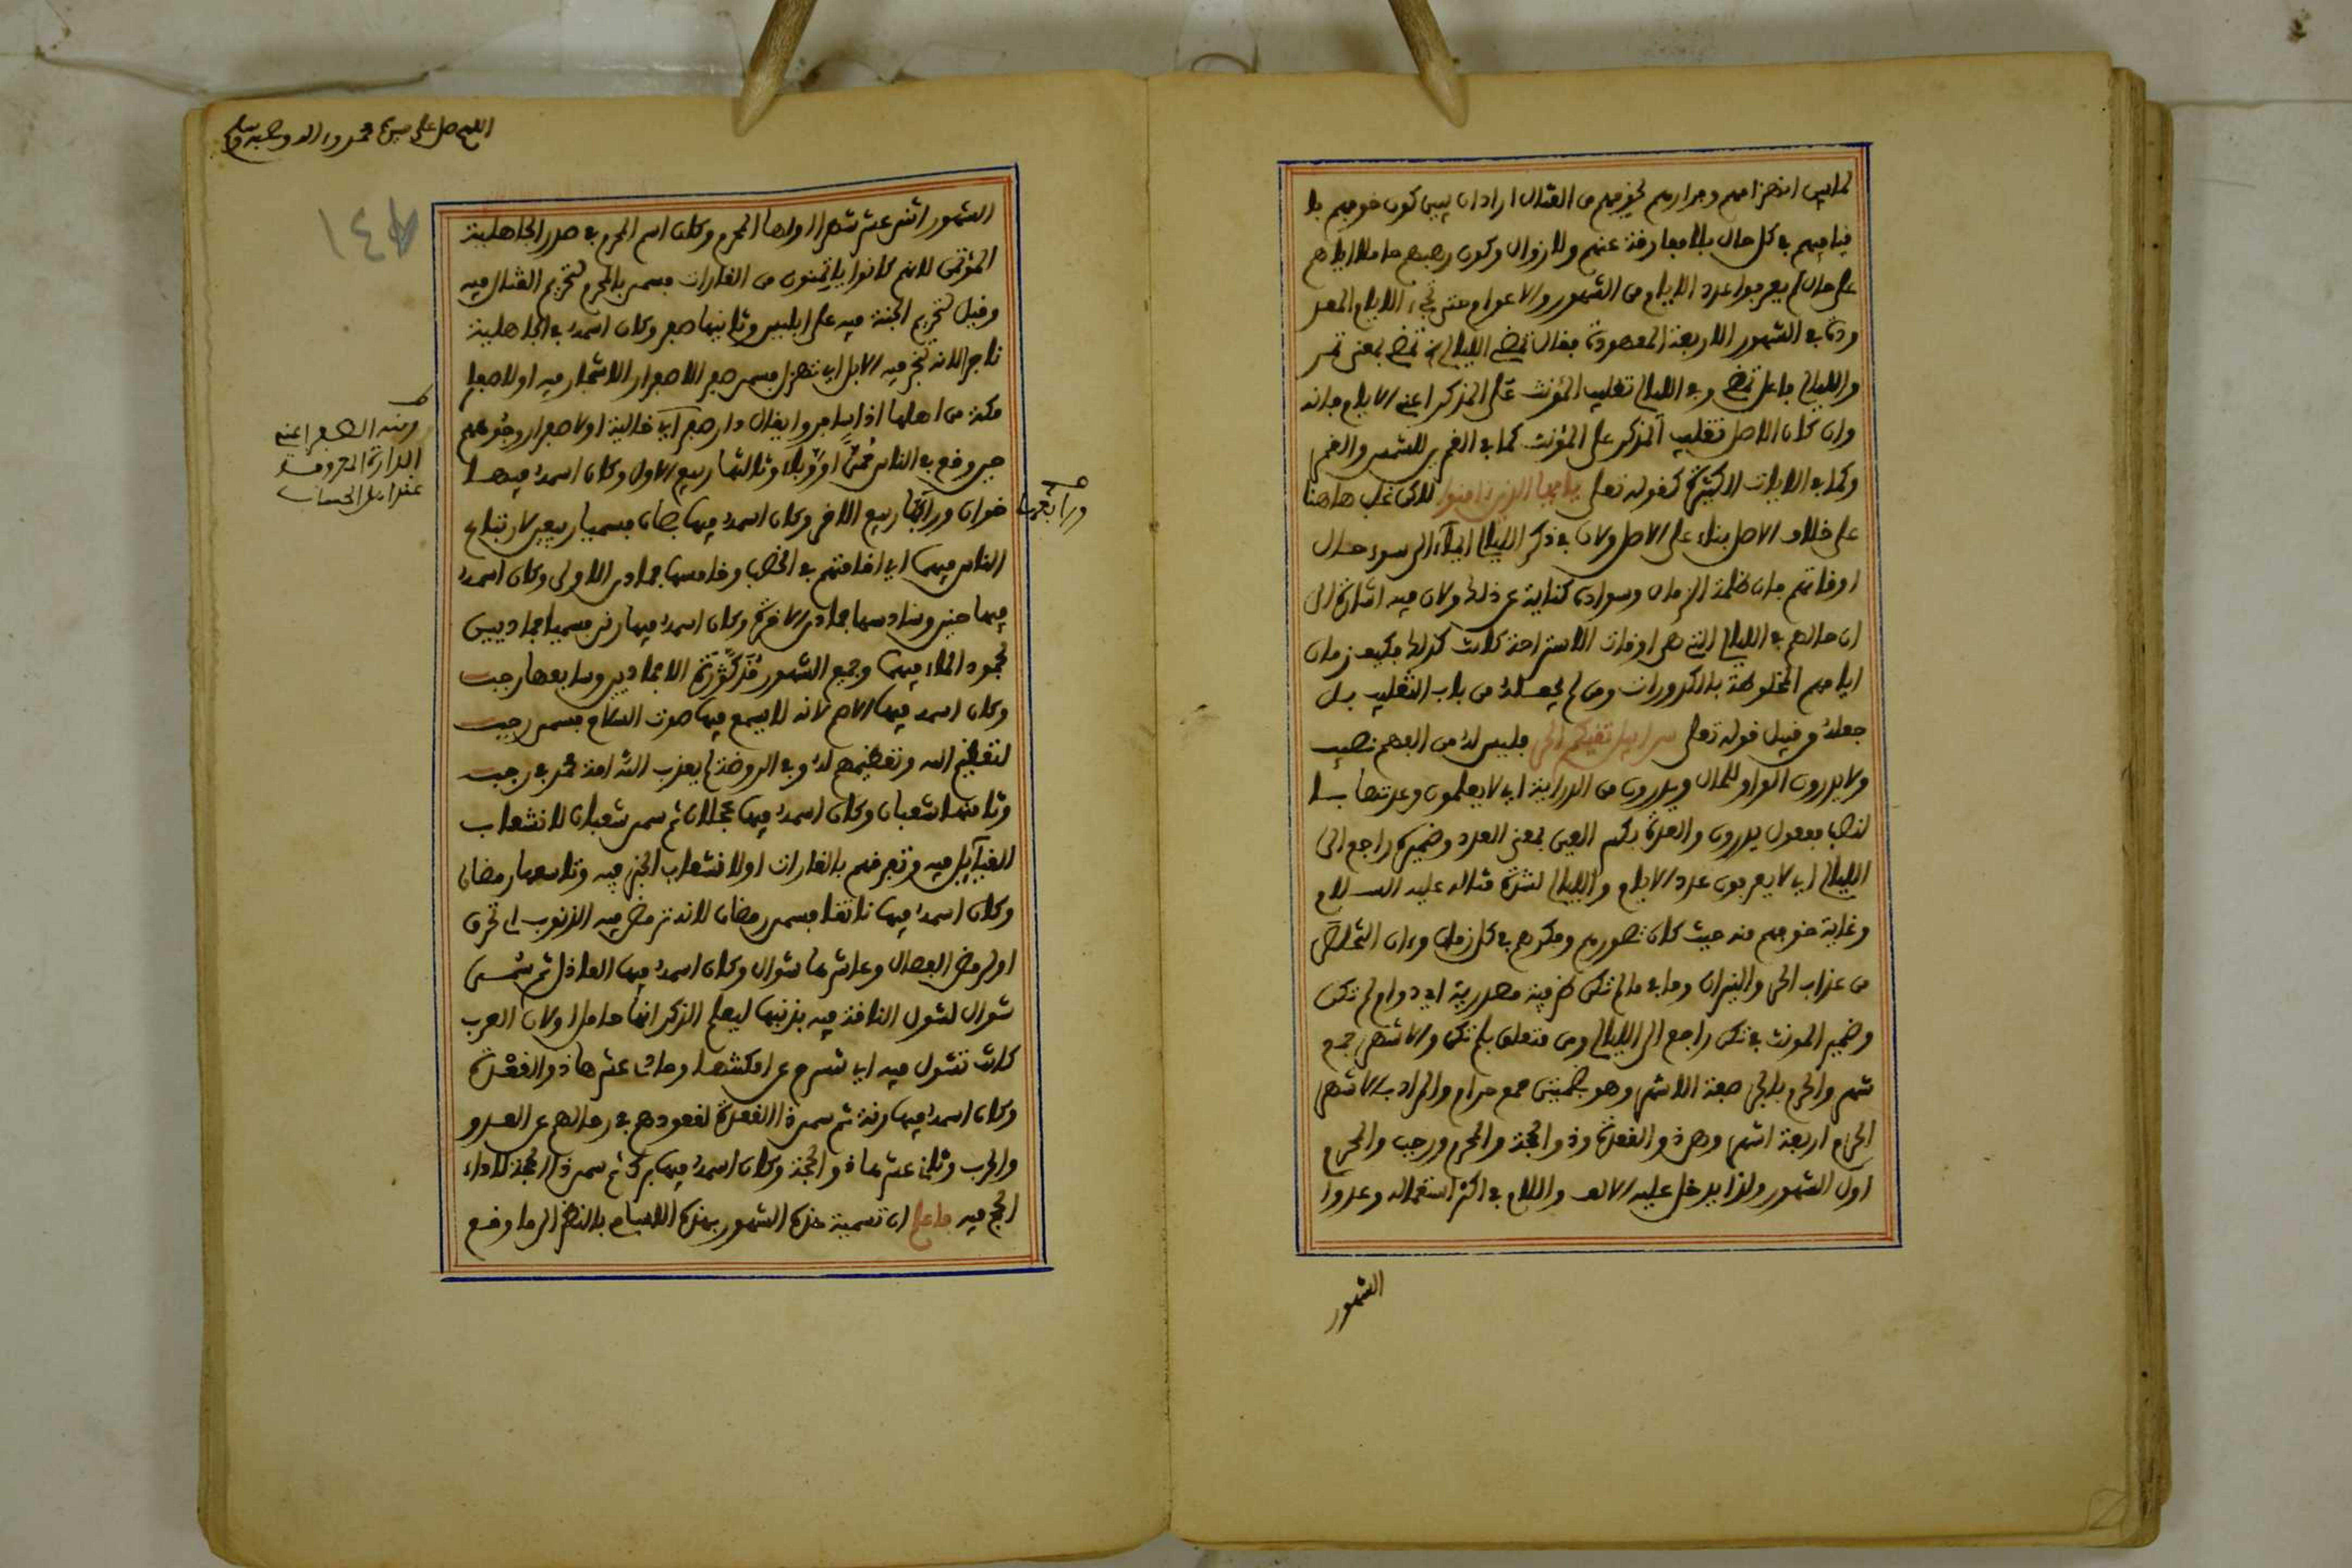 لما بين انهزامهم وفرارهم لخوفهم من القتال اراد ان يبين كون خوفهم با
قيا فيهم في كل حال بلا مفارقة عنهم ولا زوال وكون رعبهم حاملا اياهم
على حال لم يعرفوا عدد الايام من الشهور والاعوام حتى تجيء الايام المعد
ودة في الشهور الاربعة المعهودة فقال تمضي الليالي تمضي بمعنى تمر
والليالي فاعل تمضي وفي الليالي تغليب المؤنث على المذكر اعني الايام فانه
وان كان الاصل تغليب المذكر على المؤنث كما في القمرين للشمس والقمر
وكما في الايات الكثيرة كقوله تعلى يا ايها الذين ءامنوا لاكن غلب هاهنا
على خلاف الاصل بناء على الاصل ولان في ذكر الليالي ايماء الى سوء حال
اوقاتهم فان ظلمة الزمان وسواده كناية عن ذلك ولان فيه اشارة الى
ان حالهم في الليالي التي هي اوقات الاستراحة كانت كذلك فكيف زمان
ايامهم المخلوطة بالكدورات ومن لم يجعله من باب التغليب بل
جعله من قبيل قوله تعلى سرابيل تقيكم الحر فليس له من الفهم نصيب
ولا يدرون الواو للحال ويدرون من الدراية اي لا يعلمون وعدتها با
لنصب مفعول يدرون والعدة بكسر العين بمعنى العدد وضميره راجع الى
الليالي اي لا يعرفون عدد الايام والليالي لشدة قتاله عليه السلام
وغاية خوفهم منه حيث كان تصورهم وفكرهم في كل زمان وءان التخلص
من عذاب الحر والنيران وما في مالم تكن ظرفية مصدرية اي دوام لم تكن
وضمير المونث في تكن راجع الى الليالي ومن متعلق بلم تكن والاشهر جمع
شهر والحرم بالجر صفة الاشهر وهو بضمتين جمع حرام والمراد بالاشهر
الحرم اربعة اشهر وهي ذو القعدة وذو الحجة والمحرم ورجب والمحرم
اول الشهور ولذا يدخل عليه الالف واللام في اكثر استعماله وعدوا
الشهور
اللهم صل على سيدنا محمد وءاله وصحبه وسلم
١٤٨
الشهور اثنى عشر شهرا اولها المحرم وكان اسم المحرم في صدر الجاهلية
المؤتمن لانهم كانوا ياتمنون من الغارات فسمي بالمحرم لتحريم القتال فيه
وقيل لتحريم الجنة فيه على ابليس وثانيها صفر وكان اسمه في الجاهلية
ناجر لانه تنجر فيه الابل اي تهزل فسمي صفر لاصفرار الاشجار فيه او لاصفار
مكة من اهلها اذا سافروا يقال دار صفر اي خالية او لاصفرار وجوههم
حين وقع في الناس حمى او وبلاء وثالثها ربيع الاول وكان اسمه فيها
خوان ورابعها ربيع الاخر وكان اسمه فيها بصان فسميا ربيعين لارتباع
الناس فيهما اي اقامتهم في الخصب وخامسها جمادى الاولى وكان اسمه
فيها حنين وسادسها جمادى الاخرة وكان اسمه فيها رنى فسميا جماديين
لجمود الماء فيهما وجميع الشهور مذكورة الا جماديين وسابعها رجب
وكان اسمه فيها الاصم لانه لا يسمع فيها صوت السلاح فسمي رجب
لتعظيم الله وتعظيمهم له وفي الروضة لم يعذب الله امة محمد في رجب
وثامنها شعبان وكان اسمه فيها عجلان ثم سمي شعبان لانشعاب
القبائل فيه وتفرقهم بالغارات او لانشعاب الخير فيه وتاسعها رمضان
وكان اسمه فيها ناتقا فسمي رمضان لانه ترمض فيه الذنوب اي تحرق
او لرمض الفصال وعاشرها شوال وكان اسمه فيها العاذل ثم سمى
شوال لشول الناقة فيه بذنبها ليعلم الذكر انها حامل او لان العرب
كانت تشول فيه اي تسرع عن امكنتها وحادي عشرها ذو القعدة
وكان اسمه فيها رنة ثم سمي ذا القعدة لقعودهم في رحالهم عن العدو
والحرب وثاني عشرها ذو الحجة وكان اسمه فيها برك ثم سمي ذا الحجة لاداء
الحج فيه فاعلم ان تسمية هذه الشهور بهذه الاسام بالنظر الى ما وقع
ومنه الصفر اعني
الدارة المعروفة
عند اهل الحساب
ورابعها